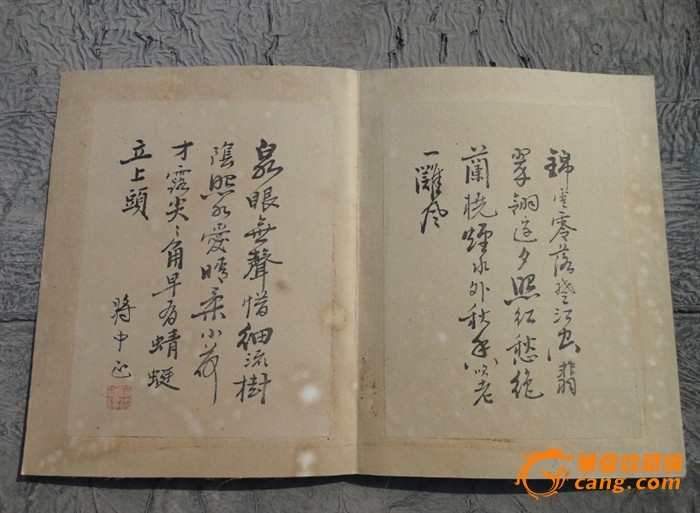 錦雲零落楚江空翡
翠翎邊夕照紅愁絕
蘭橈煙水外秋香吹老
一灘風
泉眼無聲惜細流樹
陰照水愛晴柔小荷
才露尖〻角早有蜻蜓
立上頭
蔣中正
華夏收藏網
cang.com